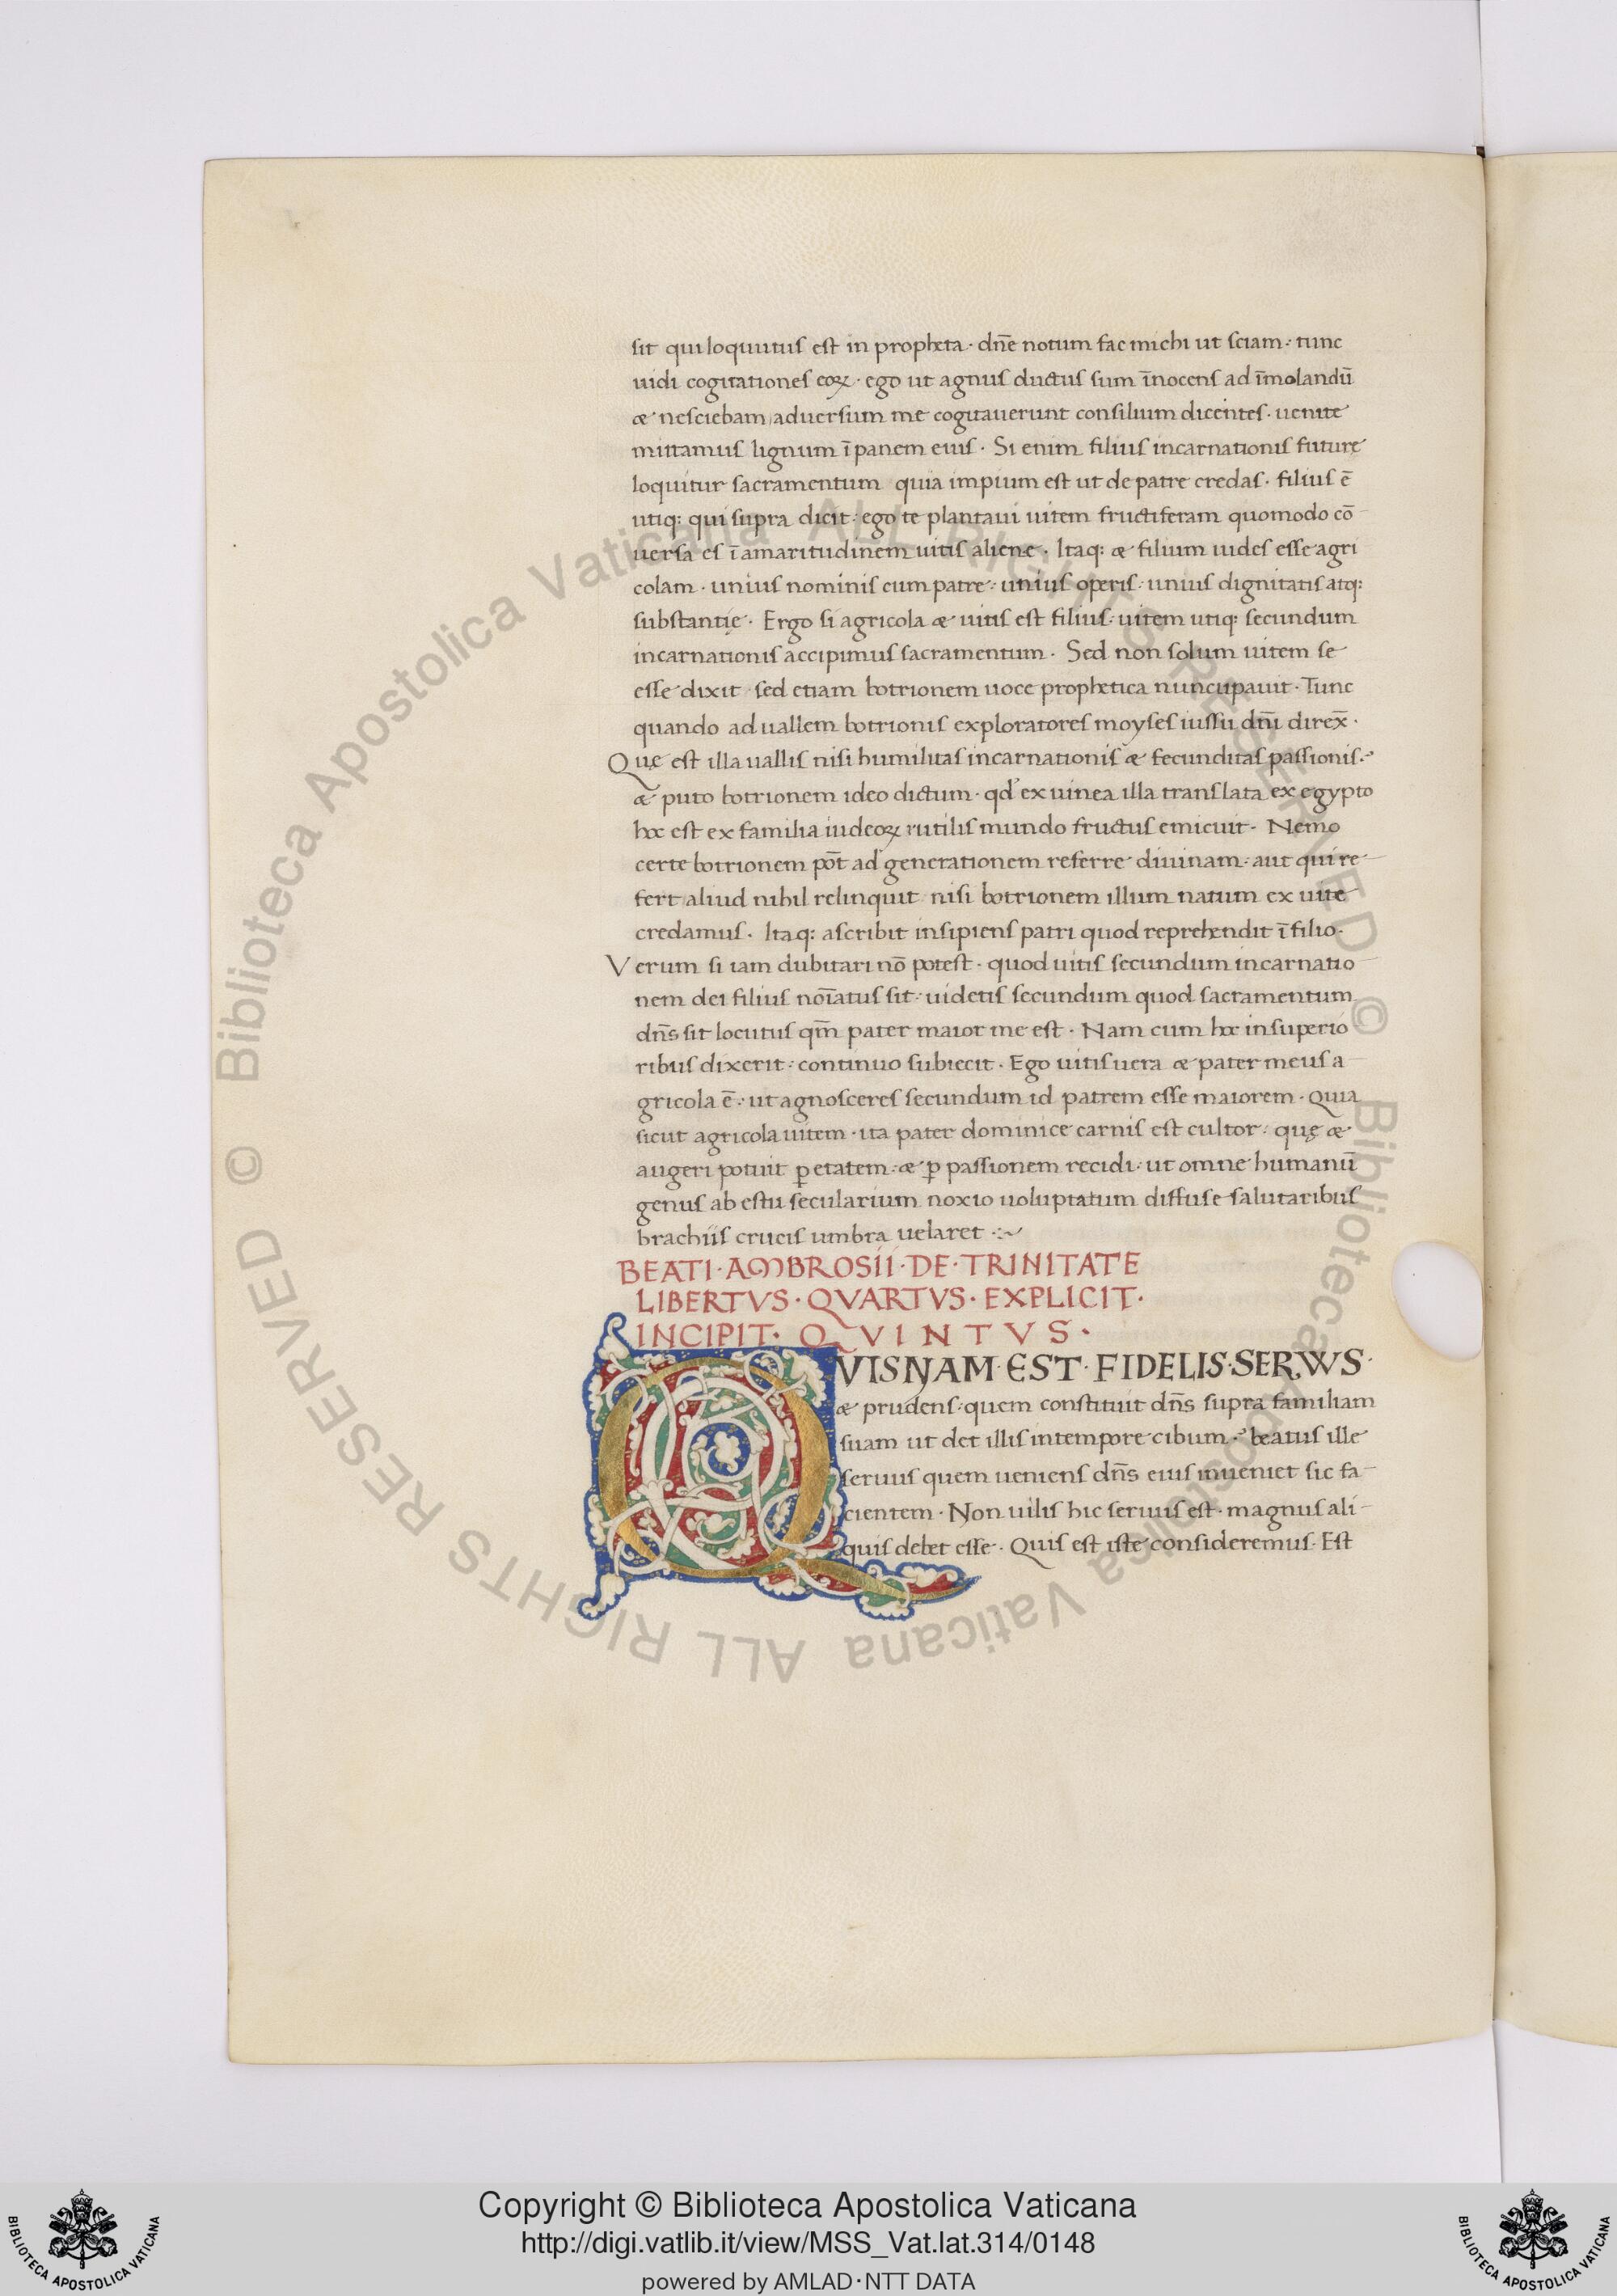 sit qui loquutus est in propheta · dn̄e notum fac michi ut sciam : tunc
uidi cogitationes eoꝝ · ego ut agnus ductus sum īnocens ad īmolandū
æ nesciebam aduersum me cogitauerunt consilium dicentes · uenite
mittamus lignum ī panem eius · Si enim filius incarnationis futurę
loquitur sacramentum quia impium est ut de patre credas · filius ē
utiq: qui supra dicit : ego te plantaui uitem fructiferam quomodo cō
uersa es ī amaritudinem uitis aliene · Itaq: æ filium uides esse agri
colam · unius nominis cum patre : unius operis : unius dignitatis atq:
substantię · Ergo si agricola æ uitis est filius : uitem utiq: secundum
incarnationis accipimus sacramentum · Sed non solum uitem se
esse dixit sed etiam botrionem uoce prophetica nuncupauit · Tunc
quando ad uallem botrionis exploratores moyses iussu dn̄i direx̄ ·
Quę est illa uallis nisi humilitas incarnationis æ fecunditas passionis ·
æ puto botrionem ideo dictum · qd' ex uinea illa translata ex egypto
hoc est ex familia iudeoꝝ rutilis mundo fructus emicuit · Nemo
certe botrionem pōt ad generationem referre diuinam : aut qui re
fert aliud nihil relinquit nisi botrionem illum natum ex uite
credamus · Itaq: ascribit insipiens patri quod reprehendit ī filio ·
Verum si iam dubitari nō potest · quod uitis secundum incarnatio
nem dei filius noīatus sit : uidetis secundum quod sacramentum
dn̄s sit locutus qm̄ pater maior me est · Nam cum hoc in superio
ribus dixerit : continuo subiecit · Ego uitis uera æ pater meus a
gricola ē : ut agnosceres secundum id patrem esse maiorem · Quia
sicut agricola uitem · ita pater dominice carnis est cultor : quę æ
augeri potuit ꝑ etatem : æ ꝑ passionem recidi : ut omne humanū
genus ab estu secularium noxio uoluptatum diffuse salutaribus
brachiis crucis umbra uelaret :~
BEATI · AMBROSII · DE · TRINITATE
LIBERTVS · QVARTVS · EXPLICIT ·
INCIPIT · QVINTVS ·
QVISNAM · EST · FIDELIS · SERVVS ·
æ prudens : quem constituit dn̄s supra familiam
suam ut det illis in tempore cibum · beatus ille
seruus quem ueniens dn̄s eius inueniet sic fa
cientem · Non uilis hic seruus est · magnus ali
quis debet esse · Quis est iste consideremus · Est
© Biblioteca Apostolica Vaticana ALL RIGHTS RESERVED
© Biblioteca Apostolica Vaticana ALL RIGHTS RESERVED
Copyright © Biblioteca Apostolica Vaticana
http://digi.vatlib.it/view/MSS_Vat.lat.314/0148
powered by AMLAD · NTT DATA
BIBLIOTECA APOSTOLICA VATICANA
BIBLIOTECA APOSTOLICA VATICANA